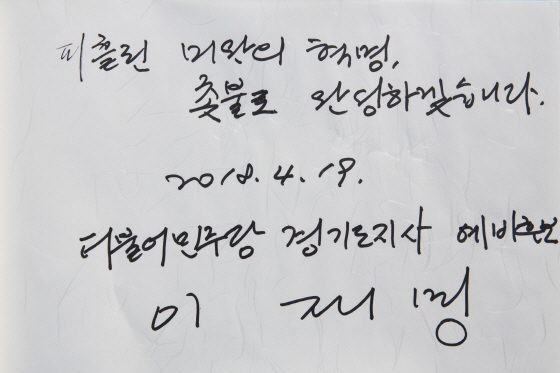 피흘린 미완의 혁명,
촛불로 완성하겠습니다.
2018. 4. 19.
더불어민주당 경기도지사 예비후보
이 재 명